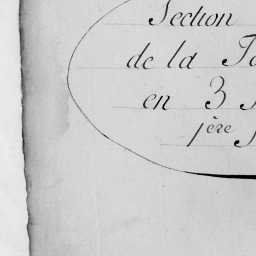 Section
de la
en 3
1ère